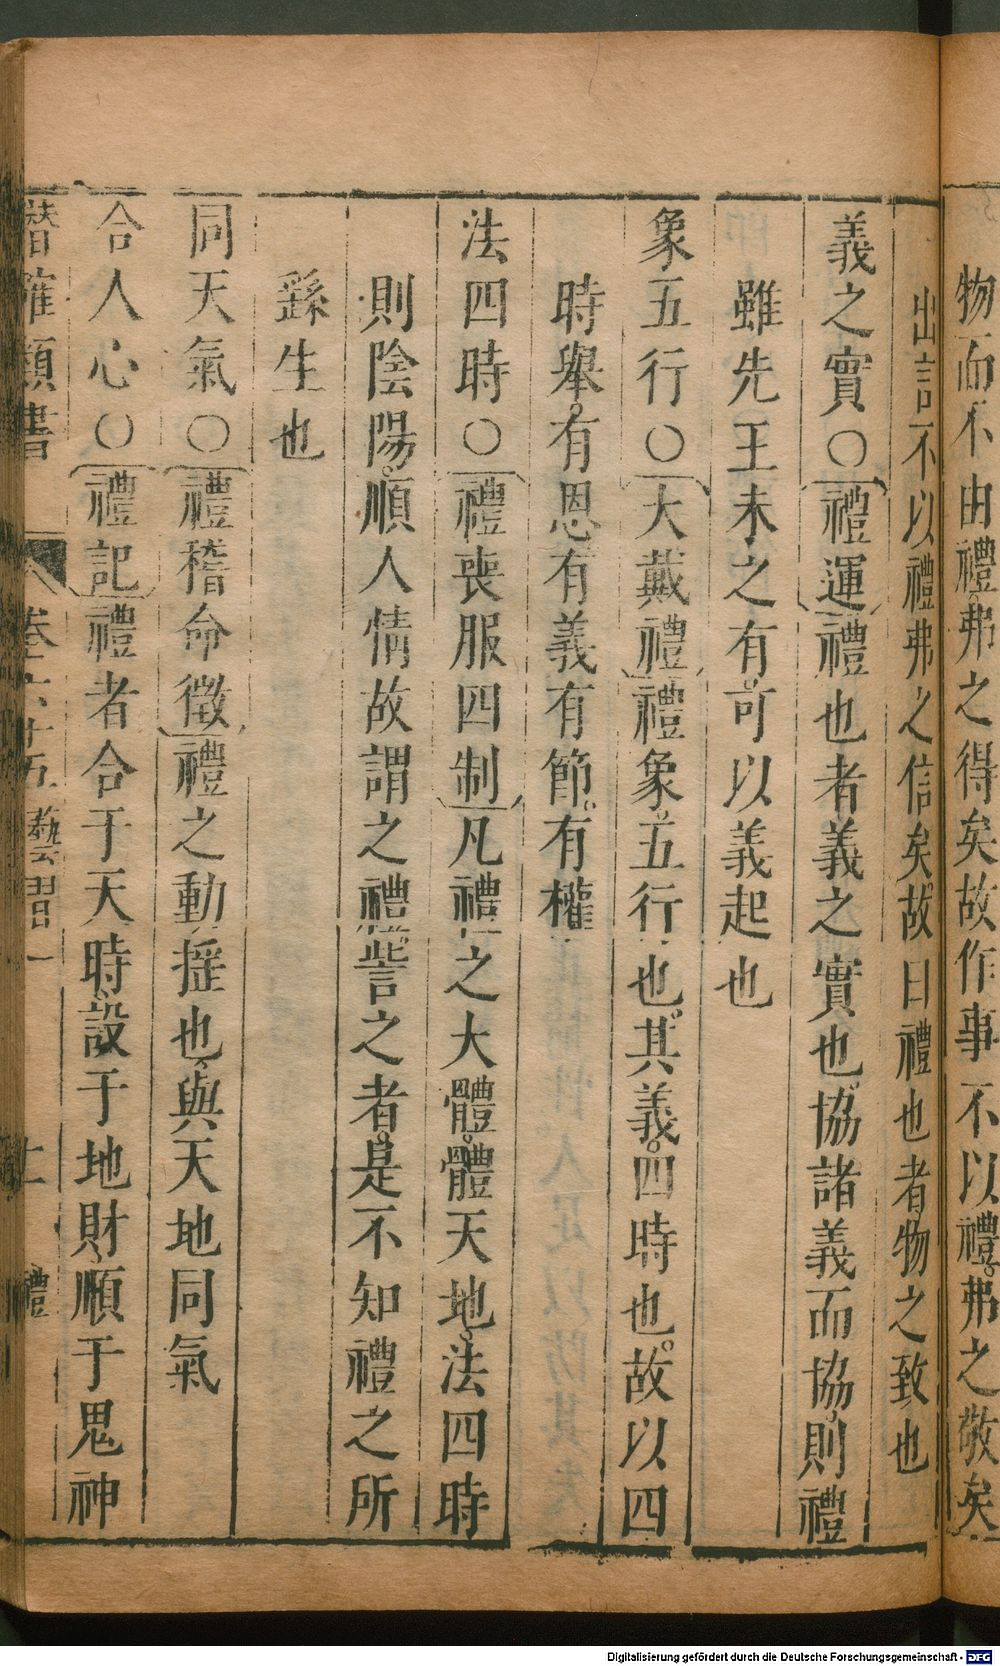 物而不由禮弗之得矣故作事不以禮弗之敬矣
出言不以禮弗之信矣故曰禮也者物之致也
義之實〇禮運禮也者義之實也協諸義而協則禮
雖先王未之有可以義起也
象五行〇大戴禮禮象五行也其義四時也故以四
時舉有恩有義有節有權
法四時〇禮喪服四制凡禮之大體體天地法四時
則陰陽順人情故謂之禮訾之者是不知禮之所
繇生也
同天氣〇禮稽命徵禮之動搖也與天地同氣
合人心〇禮記禮者合于天時設于地財順于鬼神
潛確類書 卷六十五 藝習一 七 禮
Digitalisierung gefördert durch die Deutsche Forschungsgemeinschaft - DFG